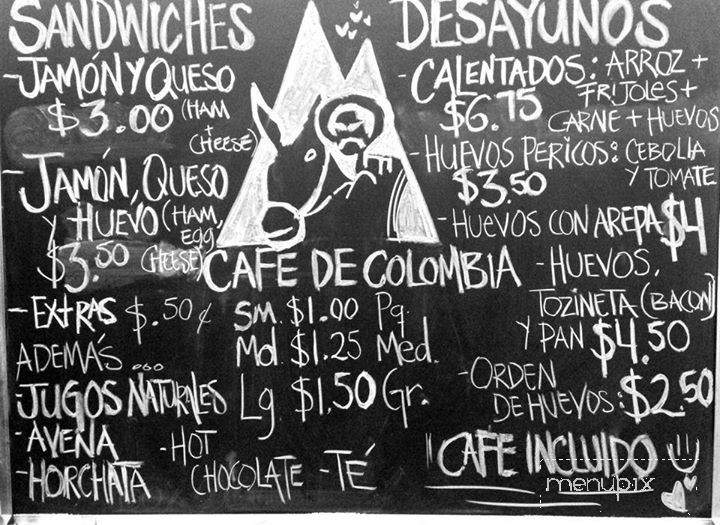 SANDWICHES
-JAMÓN Y QUESO
$3.00 (HAM
+
CHEESE)
-JAMÓN, QUESO
Y HUEVO (HAM,
EGG,
$3.50 CHEESE)
-EXTRAS $.50¢
ADEMÁS...
-JUGOS NATURALES
-AVENA
-HORCHATA
-HOT
CHOCOLATE
-TÉ
CAFÉ DE COLOMBIA
Sm. $1.00 Pq.
Md. $1.25 Med.
Lg. $1.50 Gr.
DESAYUNOS
-CALENTADOS: ARROZ +
FRIJOLES +
$6.75 CARNE + HUEVOS
-HUEVOS PERICOS: CEBOLLA
$3.50 Y TOMATE
-HUEVOS CON AREPA $4
-HUEVOS,
TOZINETA (BACON)
Y PAN $4.50
-ORDEN
DE HUEVOS: $2.50
CAFÉ INCLUIDO
menupix